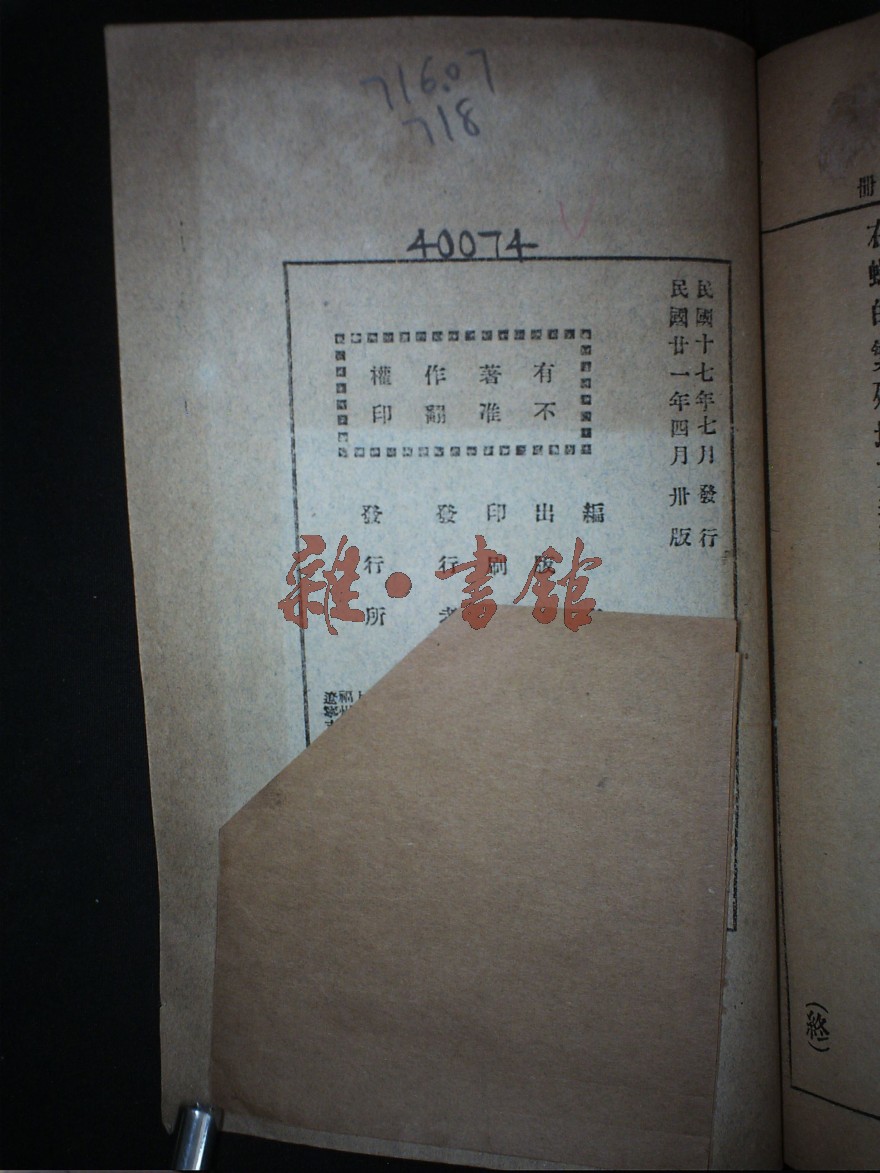 716.07
718
40074
民國十七年七月發行
民國廿一年四月卅版
有著作權
不准翻印
編
出版
印刷
發行者
發行所
雜·書館
冊
(終)